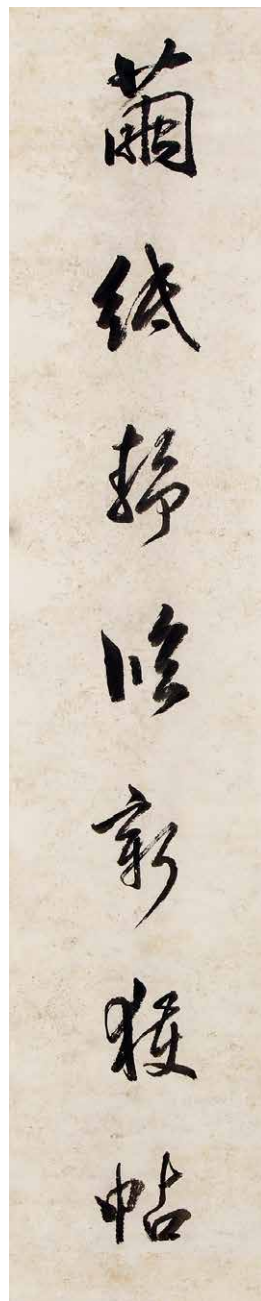 繭紙靜臨新獲帖